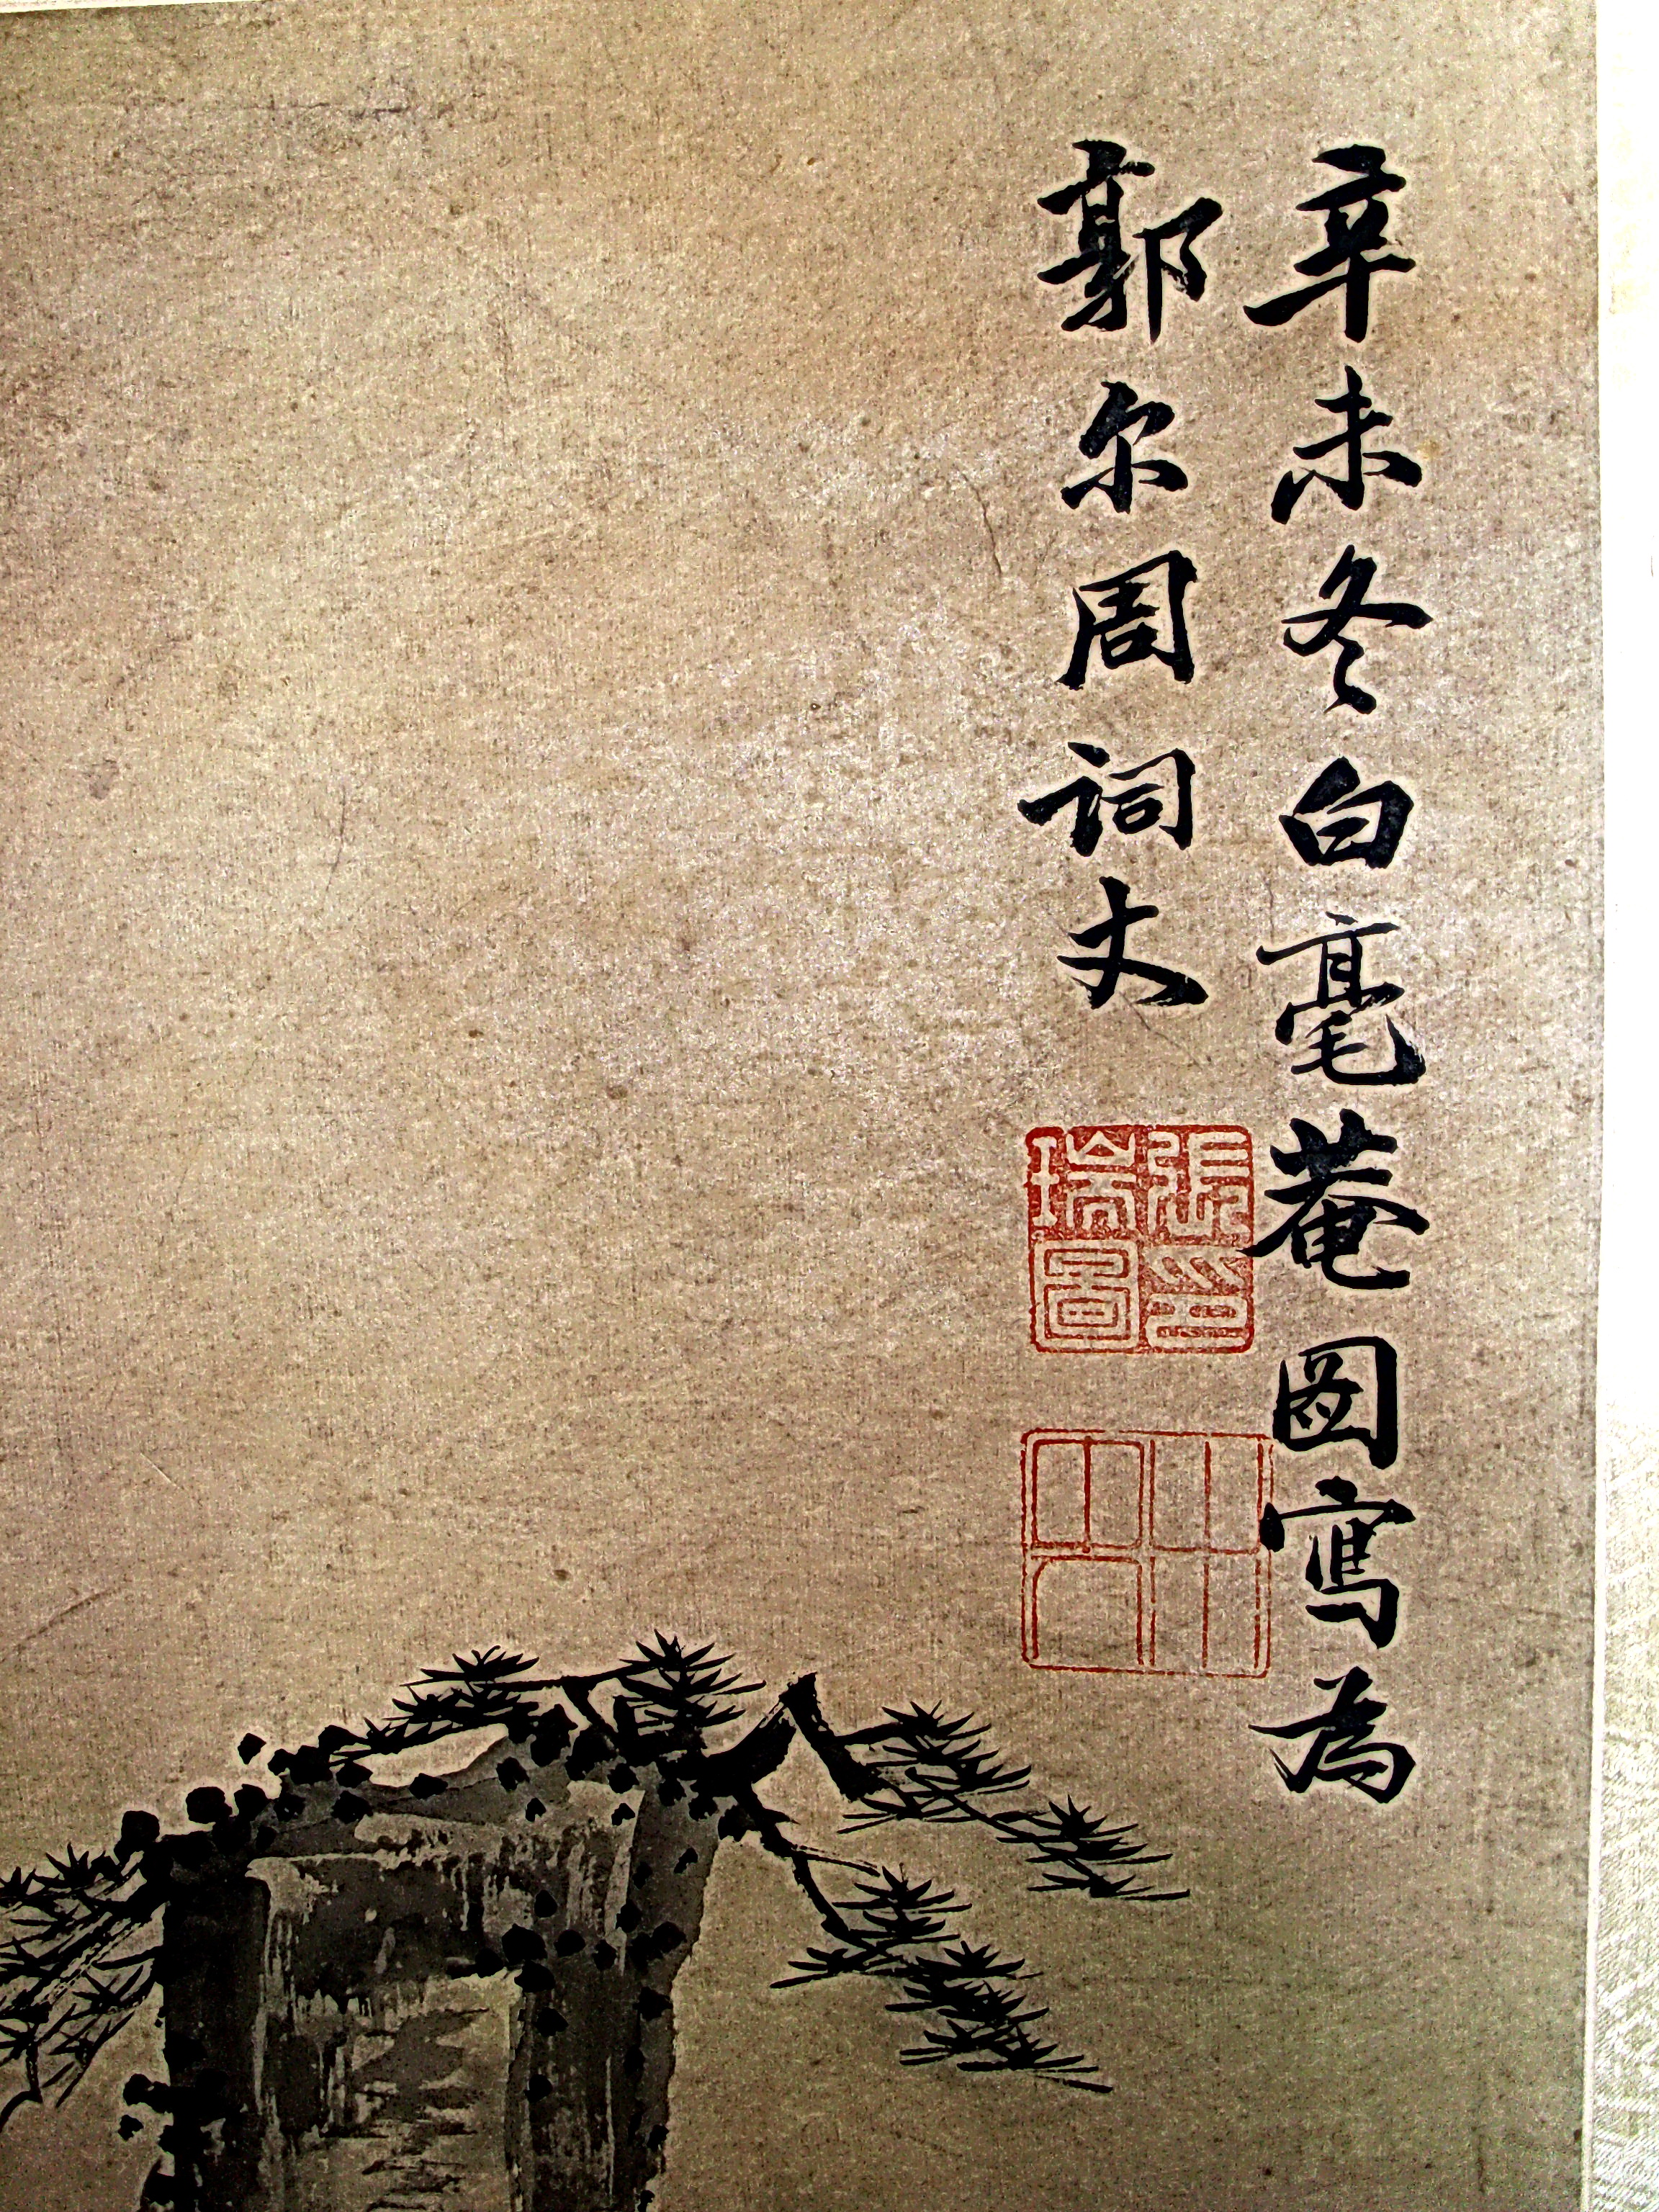 辛未冬白毫菴圖寫為
郭尔周詞丈
張瑞圖印